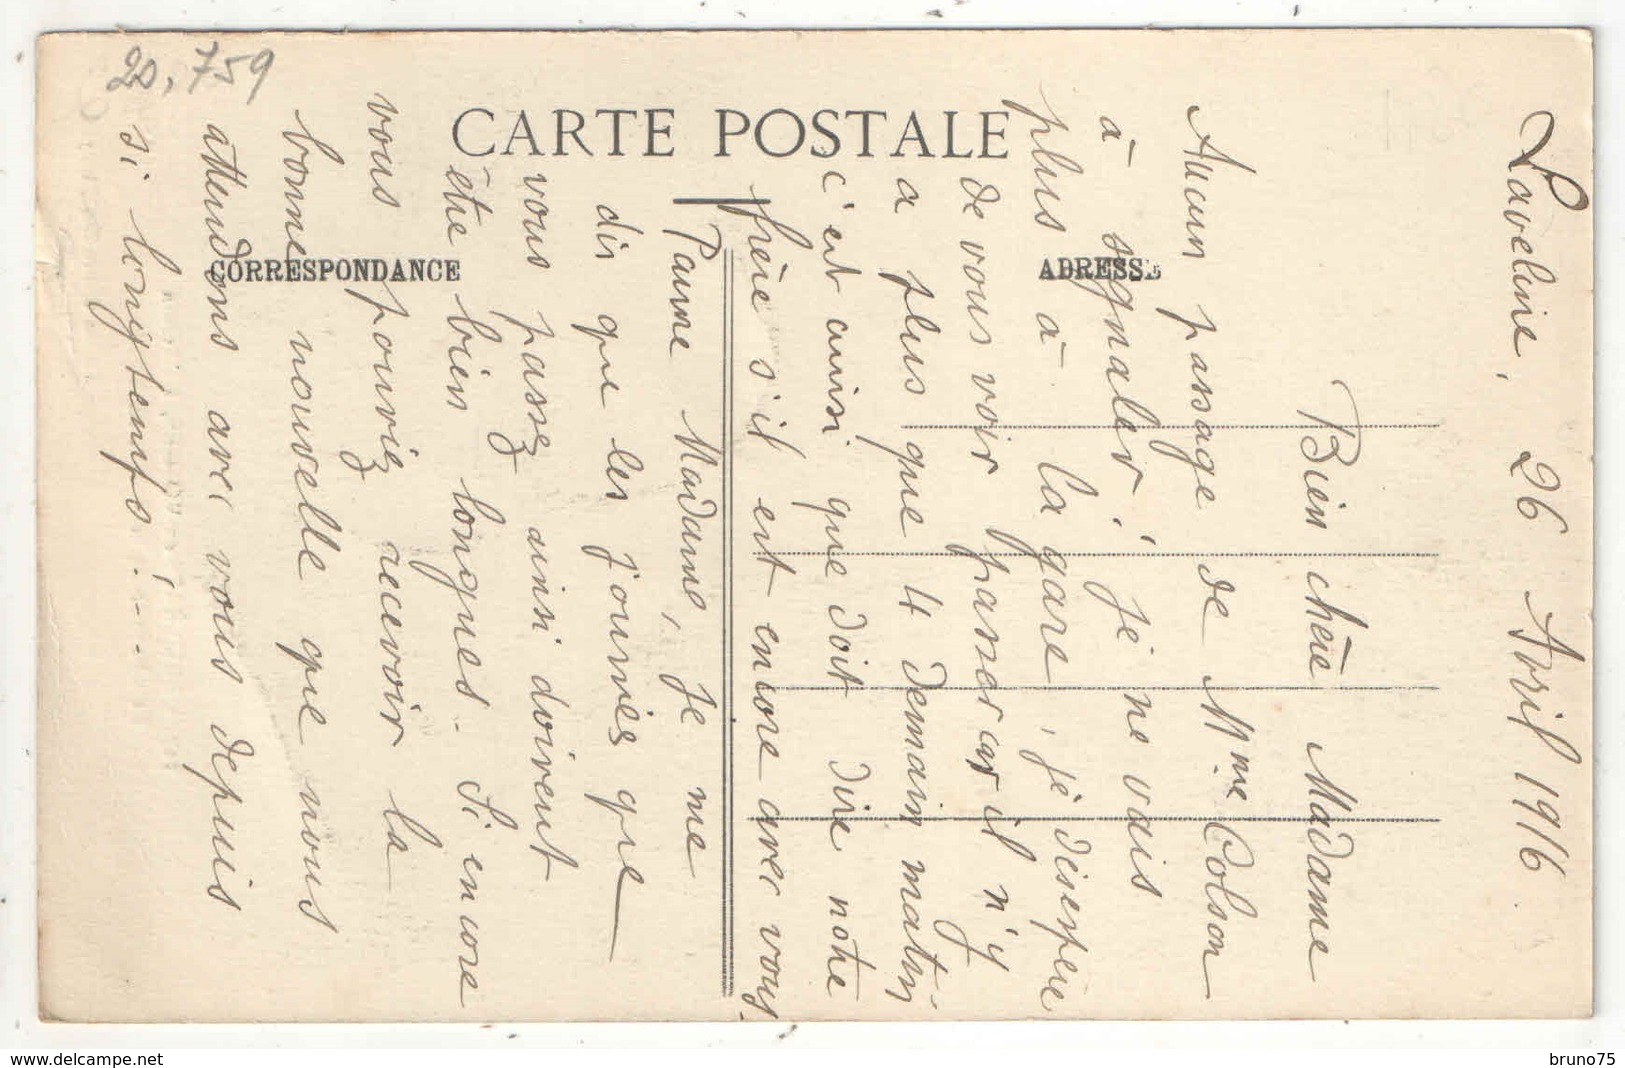 20.759
CARTE POSTALE
CORRESPONDANCE
ADRESSE
Laveline, 26 Avril 1916
Bien chère Madame
Aucun passage de Mme Colson
à signaler, je ne vais
plus à la gare, je désespère
de vous voir passer car il n'y
a plus que 4 demain matin
c'est ainsi que doit dire notre
frère s'il est encore avec vous.
Pauvre Madame, je me
dis que les journées que
vous passez ainsi doivent
être bien longues. Si encore
vous pouviez recevoir la
bonne nouvelle que nous
attendons avec vous depuis
si longtemps!...
www.delcampe.net
bruno75